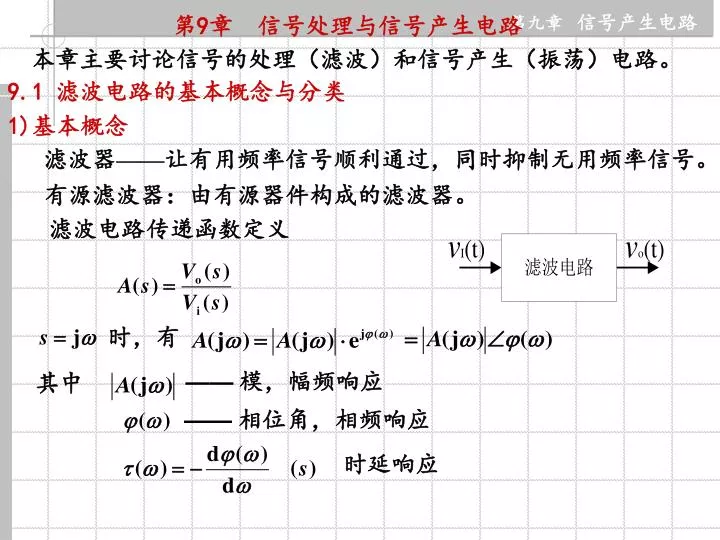 第九章 信号产生电路
第9章 信号处理与信号产生电路
本章主要讨论信号的处理（滤波）和信号产生（振荡）电路。
9.1 滤波电路的基本概念与分类
1)基本概念
滤波器——让有用频率信号顺利通过，同时抑制无用频率信号。
有源滤波器：由有源器件构成的滤波器。
滤波电路传递函数定义
V_I(t) 滤波电路 V_o(t)
A(s) = V_o(s) / V_i(s)
s = jω 时，有 A(jω) = |A(jω)| · e^{jφ(ω)} = |A(jω)|∠φ(ω)
其中 |A(jω)| —— 模，幅频响应
φ(ω) —— 相位角，相频响应
τ(ω) = − dφ(ω) / dω (s) 时延响应